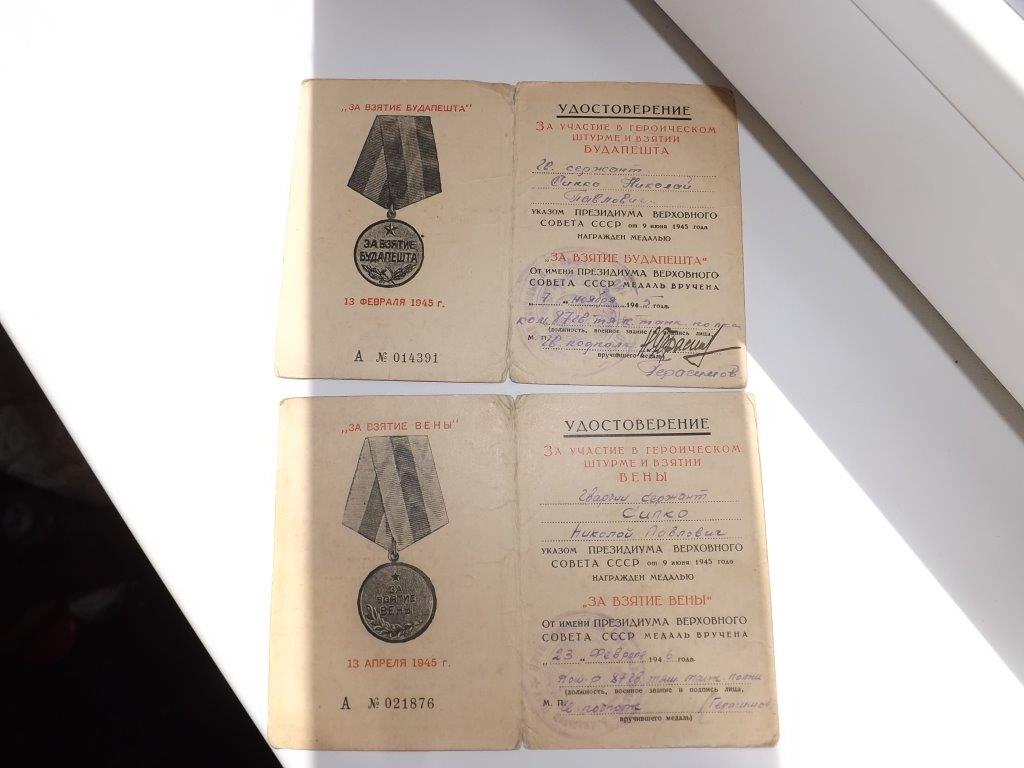 „ЗА ВЗЯТИЕ БУДАПЕШТА"
ЗА ВЗЯТИЕ
БУДАПЕШТА
13 ФЕВРАЛЯ 1945 г.
А № 014391
УДОСТОВЕРЕНИЕ
ЗА УЧАСТИЕ В ГЕРОИЧЕСКОМ
ШТУРМЕ И ВЗЯТИИ
БУДАПЕШТА
Гв. сержант
Сипко Николай
Павлович
УКАЗОМ ПРЕЗИДИУМА ВЕРХОВНОГО
СОВЕТА СССР от 9 июня 1945 года
НАГРАЖДЕН МЕДАЛЬЮ
„ЗА ВЗЯТИЕ БУДАПЕШТА"
От имени ПРЕЗИДИУМА ВЕРХОВНОГО
СОВЕТА СССР МЕДАЛЬ ВРУЧЕНА
„7" ноября 1945 года.
87 гв тяж танк полка
(должность, военное звание и подпись лица,
М. П. Гв. подполк
вручившего медаль)
Герасимов
„ЗА ВЗЯТИЕ ВЕНЫ"
ЗА
ВЗЯТИЕ
ВЕНЫ
13 АПРЕЛЯ 1945 г.
А № 021876
УДОСТОВЕРЕНИЕ
ЗА УЧАСТИЕ В ГЕРОИЧЕСКОМ
ШТУРМЕ И ВЗЯТИИ
ВЕНЫ
Гвардии сержант
Сипко
Николай Павлович
УКАЗОМ ПРЕЗИДИУМА ВЕРХОВНОГО
СОВЕТА СССР от 9 июня 1945 года
НАГРАЖДЕН МЕДАЛЬЮ
„ЗА ВЗЯТИЕ ВЕНЫ"
От имени ПРЕЗИДИУМА ВЕРХОВНОГО
СОВЕТА СССР МЕДАЛЬ ВРУЧЕНА
„23" февраля 1946 года.
87 гв тяж танк полка
(должность, военное звание и подпись лица,
М. П. Гв. подполк Герасимов
вручившего медаль)